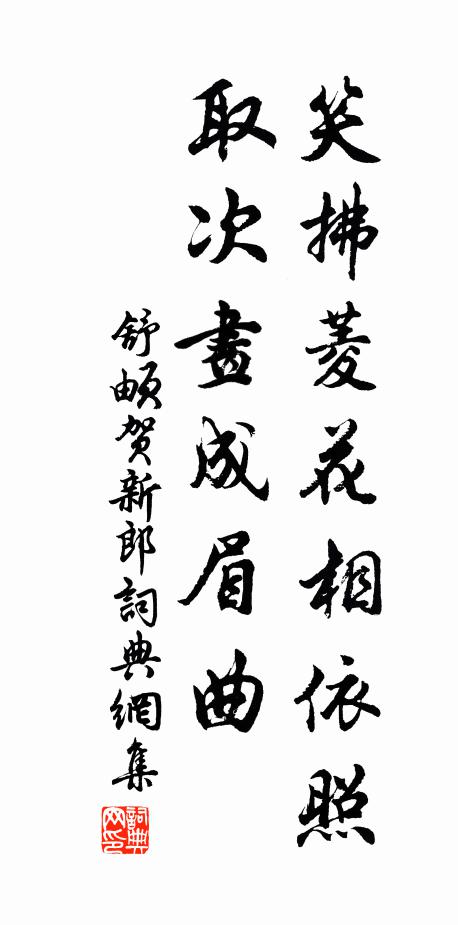 笑拂菱花相依照
取次畫成眉曲
舒頔贺新郎詞典網集
詞典网印